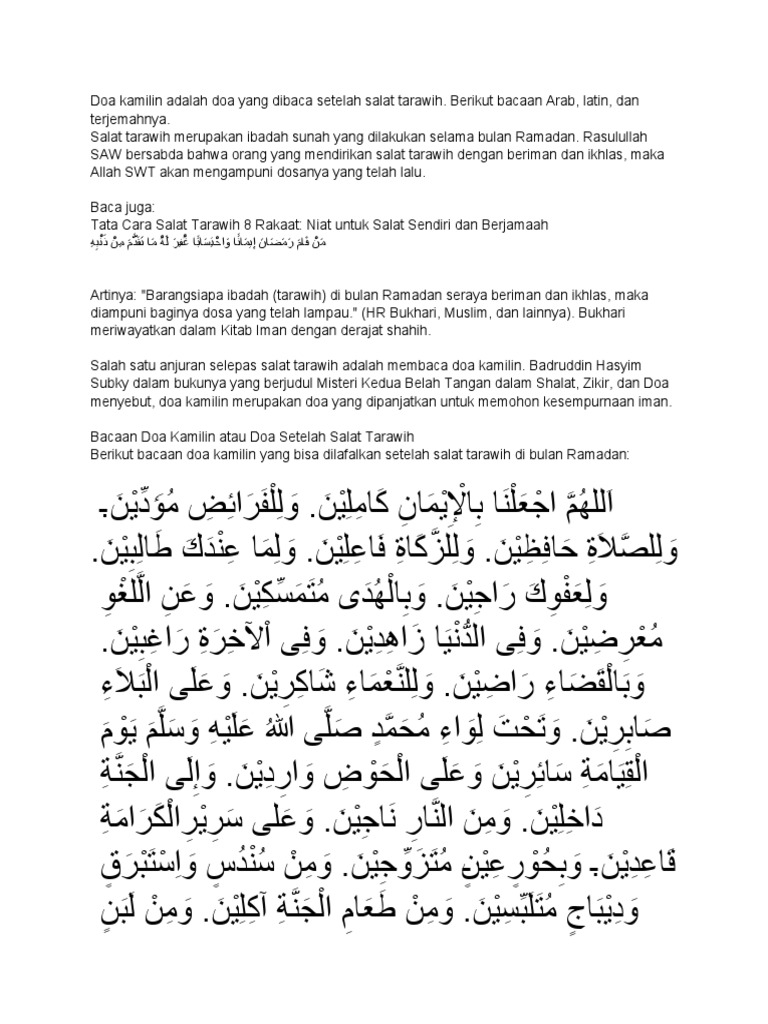 Doa kamilin adalah doa yang dibaca setelah salat tarawih. Berikut bacaan Arab, latin, dan
terjemahnya.
Salat tarawih merupakan ibadah sunah yang dilakukan selama bulan Ramadan. Rasulullah
SAW bersabda bahwa orang yang mendirikan salat tarawih dengan beriman dan ikhlas, maka
Allah SWT akan mengampuni dosanya yang telah lalu.
Baca juga:
Tata Cara Salat Tarawih 8 Rakaat: Niat untuk Salat Sendiri dan Berjamaah
مَنْ قَامَ رَمَضَانَ إِيمَانًا وَاحْتِسَابًا غُفِرَ لَهُ مَا تَقَدَّمَ مِنْ ذَنْبِهِ
Artinya: "Barangsiapa ibadah (tarawih) di bulan Ramadan seraya beriman dan ikhlas, maka
diampuni baginya dosa yang telah lampau." (HR Bukhari, Muslim, dan lainnya). Bukhari
meriwayatkan dalam Kitab Iman dengan derajat shahih.
Salah satu anjuran selepas salat tarawih adalah membaca doa kamilin. Badruddin Hasyim
Subky dalam bukunya yang berjudul Misteri Kedua Belah Tangan dalam Shalat, Zikir, dan Doa
menyebut, doa kamilin merupakan doa yang dipanjatkan untuk memohon kesempurnaan iman.
Bacaan Doa Kamilin atau Doa Setelah Salat Tarawih
Berikut bacaan doa kamilin yang bisa dilafalkan setelah salat tarawih di bulan Ramadan:
اَللهُمَّ اجْعَلْنَا بِالْإِيْمَانِ كَامِلِيْنَ. وَلِلْفَرَائِضِ مُؤَدِّيْنَ.
وَلِلصَّلاَةِ حَافِظِيْنَ. وَلِلزَّكَاةِ فَاعِلِيْنَ. وَلِمَا عِنْدَكَ طَالِبِيْنَ.
وَلِعَفْوِكَ رَاجِيْنَ. وَبِالْهُدَى مُتَمَسِّكِيْنَ. وَعَنِ الَّلغْوِ
مُعْرِضِيْنَ. وَفِى الدُّنْيَا زَاهِدِيْنَ. وَفِى اْلآخِرَةِ رَاغِبِيْنَ.
وَبَالْقَضَاءِ رَاضِيْنَ. وَلِلنَّعْمَاءِ شَاكِرِيْنَ. وَعَلَى الْبَلاَءِ
صَابِرِيْنَ. وَتَحْتَ لِوَاءِ مُحَمَّدٍ صَلَّى اللهُ عَلَيْهِ وَسَلَّمَ يَوْمَ
الْقِيَامَةِ سَائِرِيْنَ وَعَلَى الْحَوْضِ وَارِدِيْنَ. وَإِلَى الْجَنَّةِ
دَاخِلِيْنَ. وَمِنَ النَّارِ نَاجِيْنَ. وَعَلى سَرِيْرِالْكَرَامَةِ
قَاعِدِيْنَ. وَبِحُوْرٍعِيْنٍ مُتَزَوِّجِيْنَ. وَمِنْ سُنْدُسٍ وَاِسْتَبْرَقٍ
وَدِيْبَاجٍ مُتَلَبِّسِيْنَ. وَمِنْ طَعَامِ الْجَنَّةِ آكِلِيْنَ. وَمِنْ لَبَنٍ